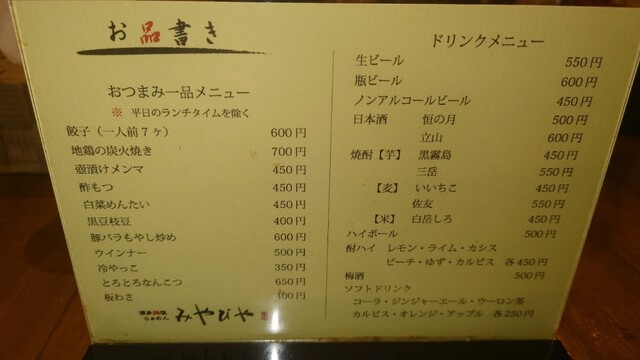 お品書き
おつまみ一品メニュー
※ 平日のランチタイムを除く
餃子（一人前7ヶ） 600円
地鶏の炭火焼き 700円
壺漬けメンマ 450円
酢もつ 450円
白菜めんたい 450円
黒豆枝豆 400円
豚バラもやし炒め 600円
ウインナー 500円
冷やっこ 350円
とろとろなんこつ 650円
板わさ 400円
らぁめん みやびや
ドリンクメニュー
生ビール 550円
瓶ビール 600円
ノンアルコールビール 450円
日本酒 恒の月 500円
立山 600円
焼酎【芋】 黒霧島 450円
三岳 550円
【麦】 いいちこ 450円
佐友 550円
【米】 白岳しろ 450円
ハイボール 500円
酎ハイ レモン・ライム・カシス
ピーチ・ゆず・カルピス 各450円
梅酒 500円
ソフトドリンク
コーラ・ジンジャーエール・ウーロン茶
カルピス・オレンジ・アップル 各250円